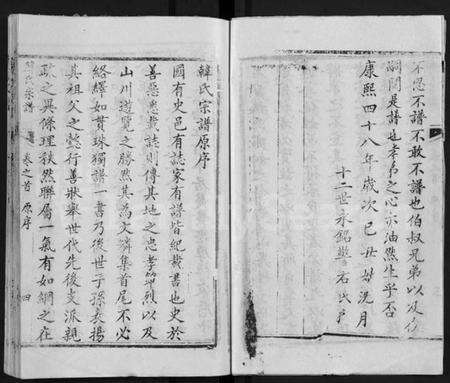 不忍不譜不敢不譜也伯叔兄弟以及
嗣閱是譜也孝弟之心亦油然生乎否
康熙四十八年歲次己丑姑洗月
十二世永銘
韓氏宗譜原序
國有史邑有誌家有譜皆紀載書也史於
善惡悉載誌則傳其地之忠孝節烈以及
山川遊覽之勝然其為文藻集首尾不必
絡繹如貫珠獨譜一書乃後世子孫表揚
其祖父之懿行善狀舉世代先後支派親
疎之異條理秩然聯屬一氣有如綱之在
宗譜 卷之首 原序 四